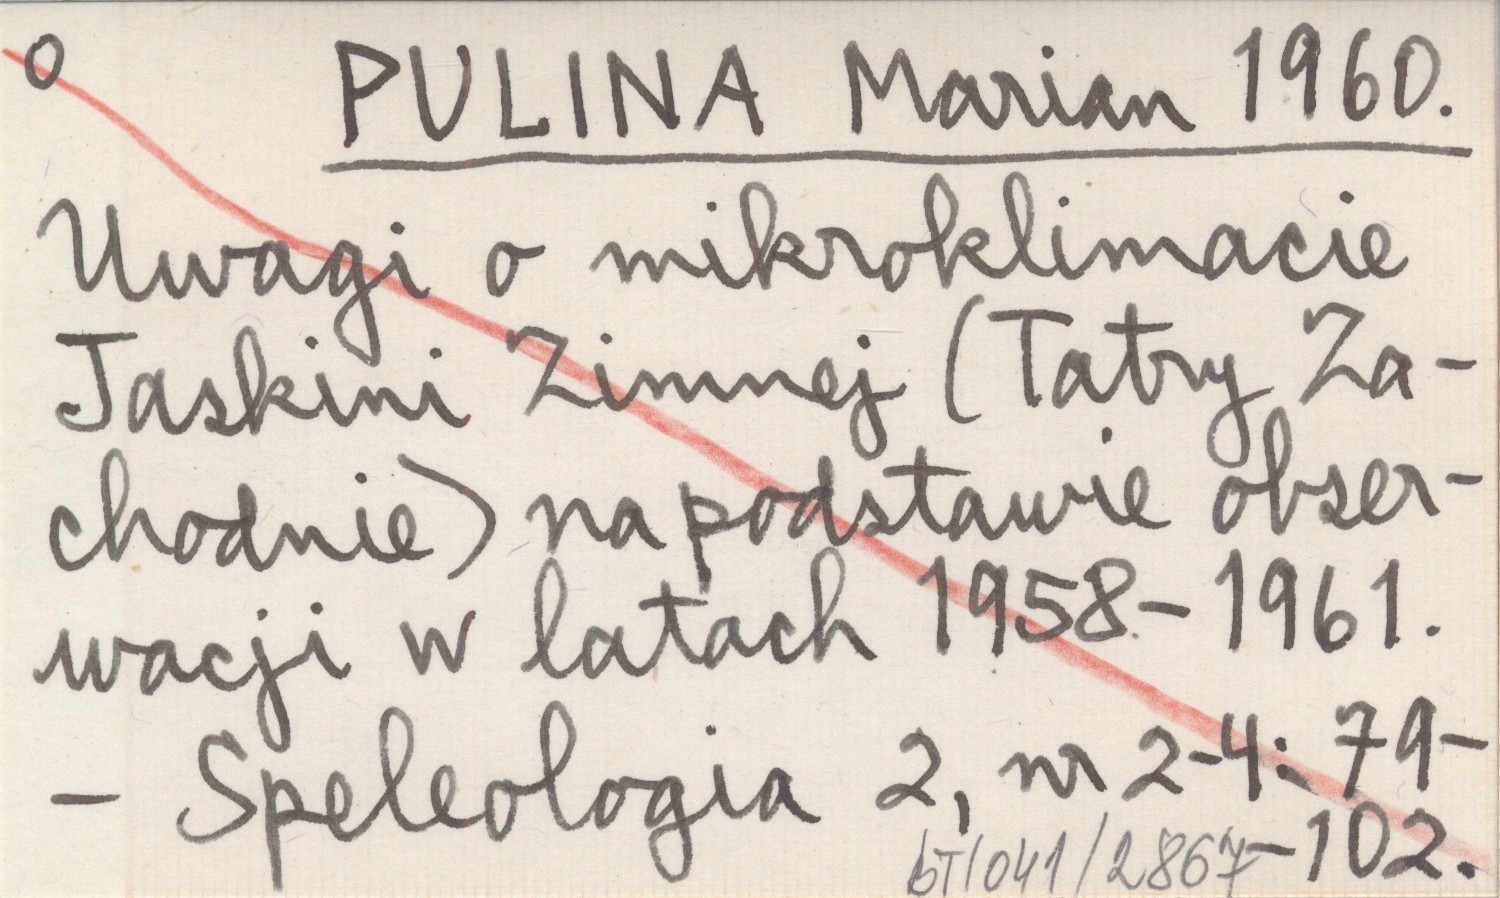 o PULINA Marian 1960.
Uwagi o mikroklimacie
Jaskini Zimnej (Tatry Za-
chodnie) na podstawie obser-
wacji w latach 1958-1961.
- Speleologia 2, nr 2-4: 79-
-102.
bT/041/2867